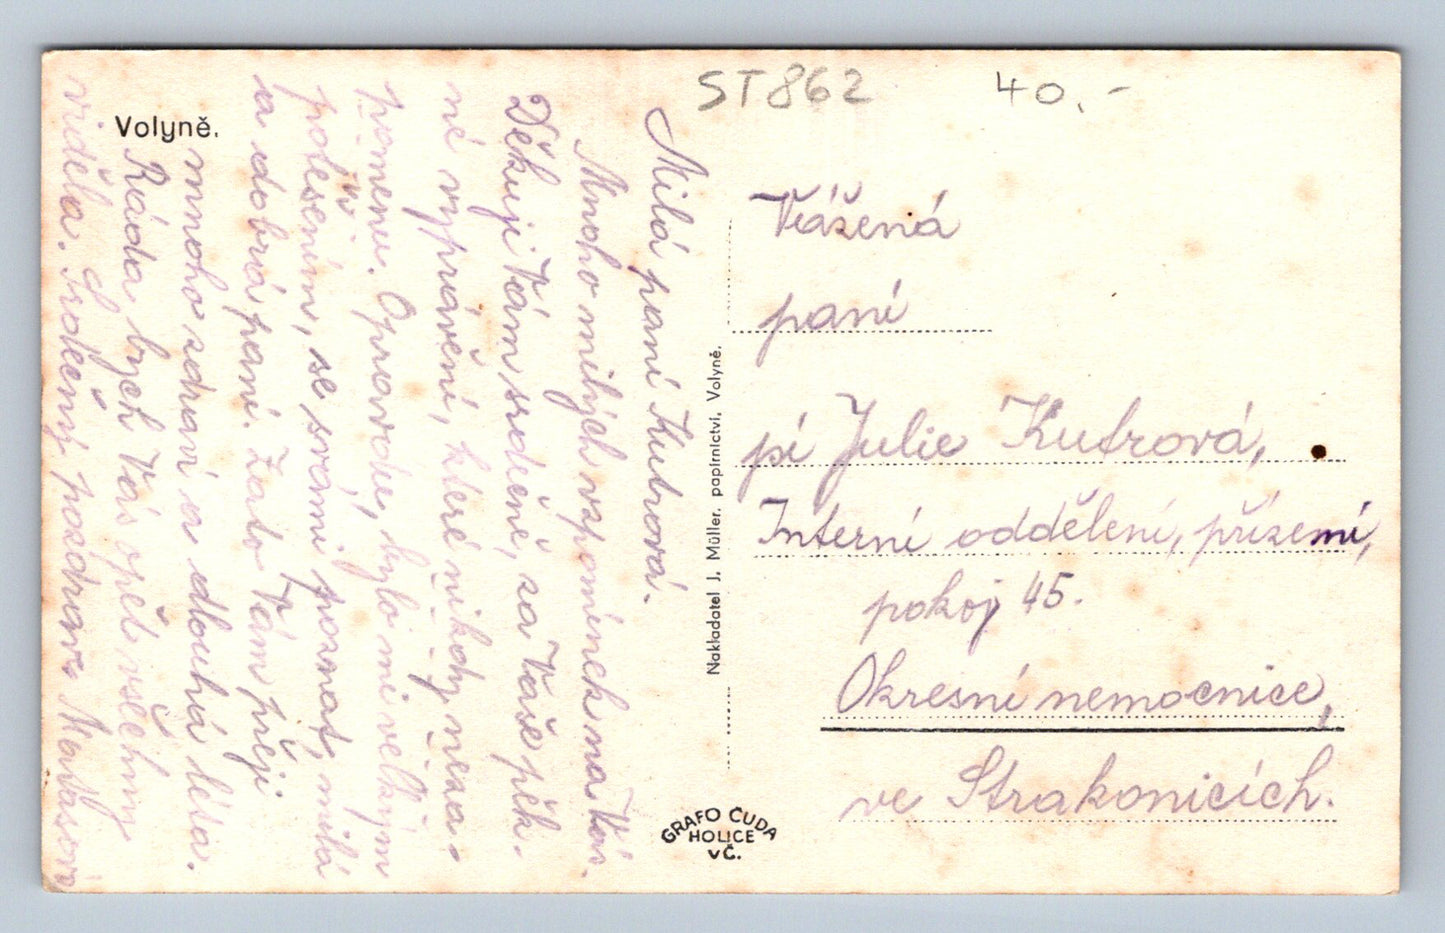 ST862 40.-
Volyně.
Milá paní Kutrová.
Mnoho milých vzpomínek na Vás.
Děkuji Vám srdečně, za Vaše pěk-
né vyprávění, které nikdy neza-
pomenu. Opravdu, bylo mi velkým
potěšením, se s vámi poznat, milá
a dobrá paní. Zato Vám přeji
mnoho zdraví a dlouhá léta.
Ráda bych Vás opět všechny
viděla. Srdečný pozdrav
Nakladatel J. Müller, papírnictví, Volyně.
GRAFO ČUDA
HOLICE
VČ.
Vážená
paní
pí Julie Kutrová,
Interní oddělení, přízemí,
pokoj 45.
Okresní nemocnice,
ve Strakonicích.